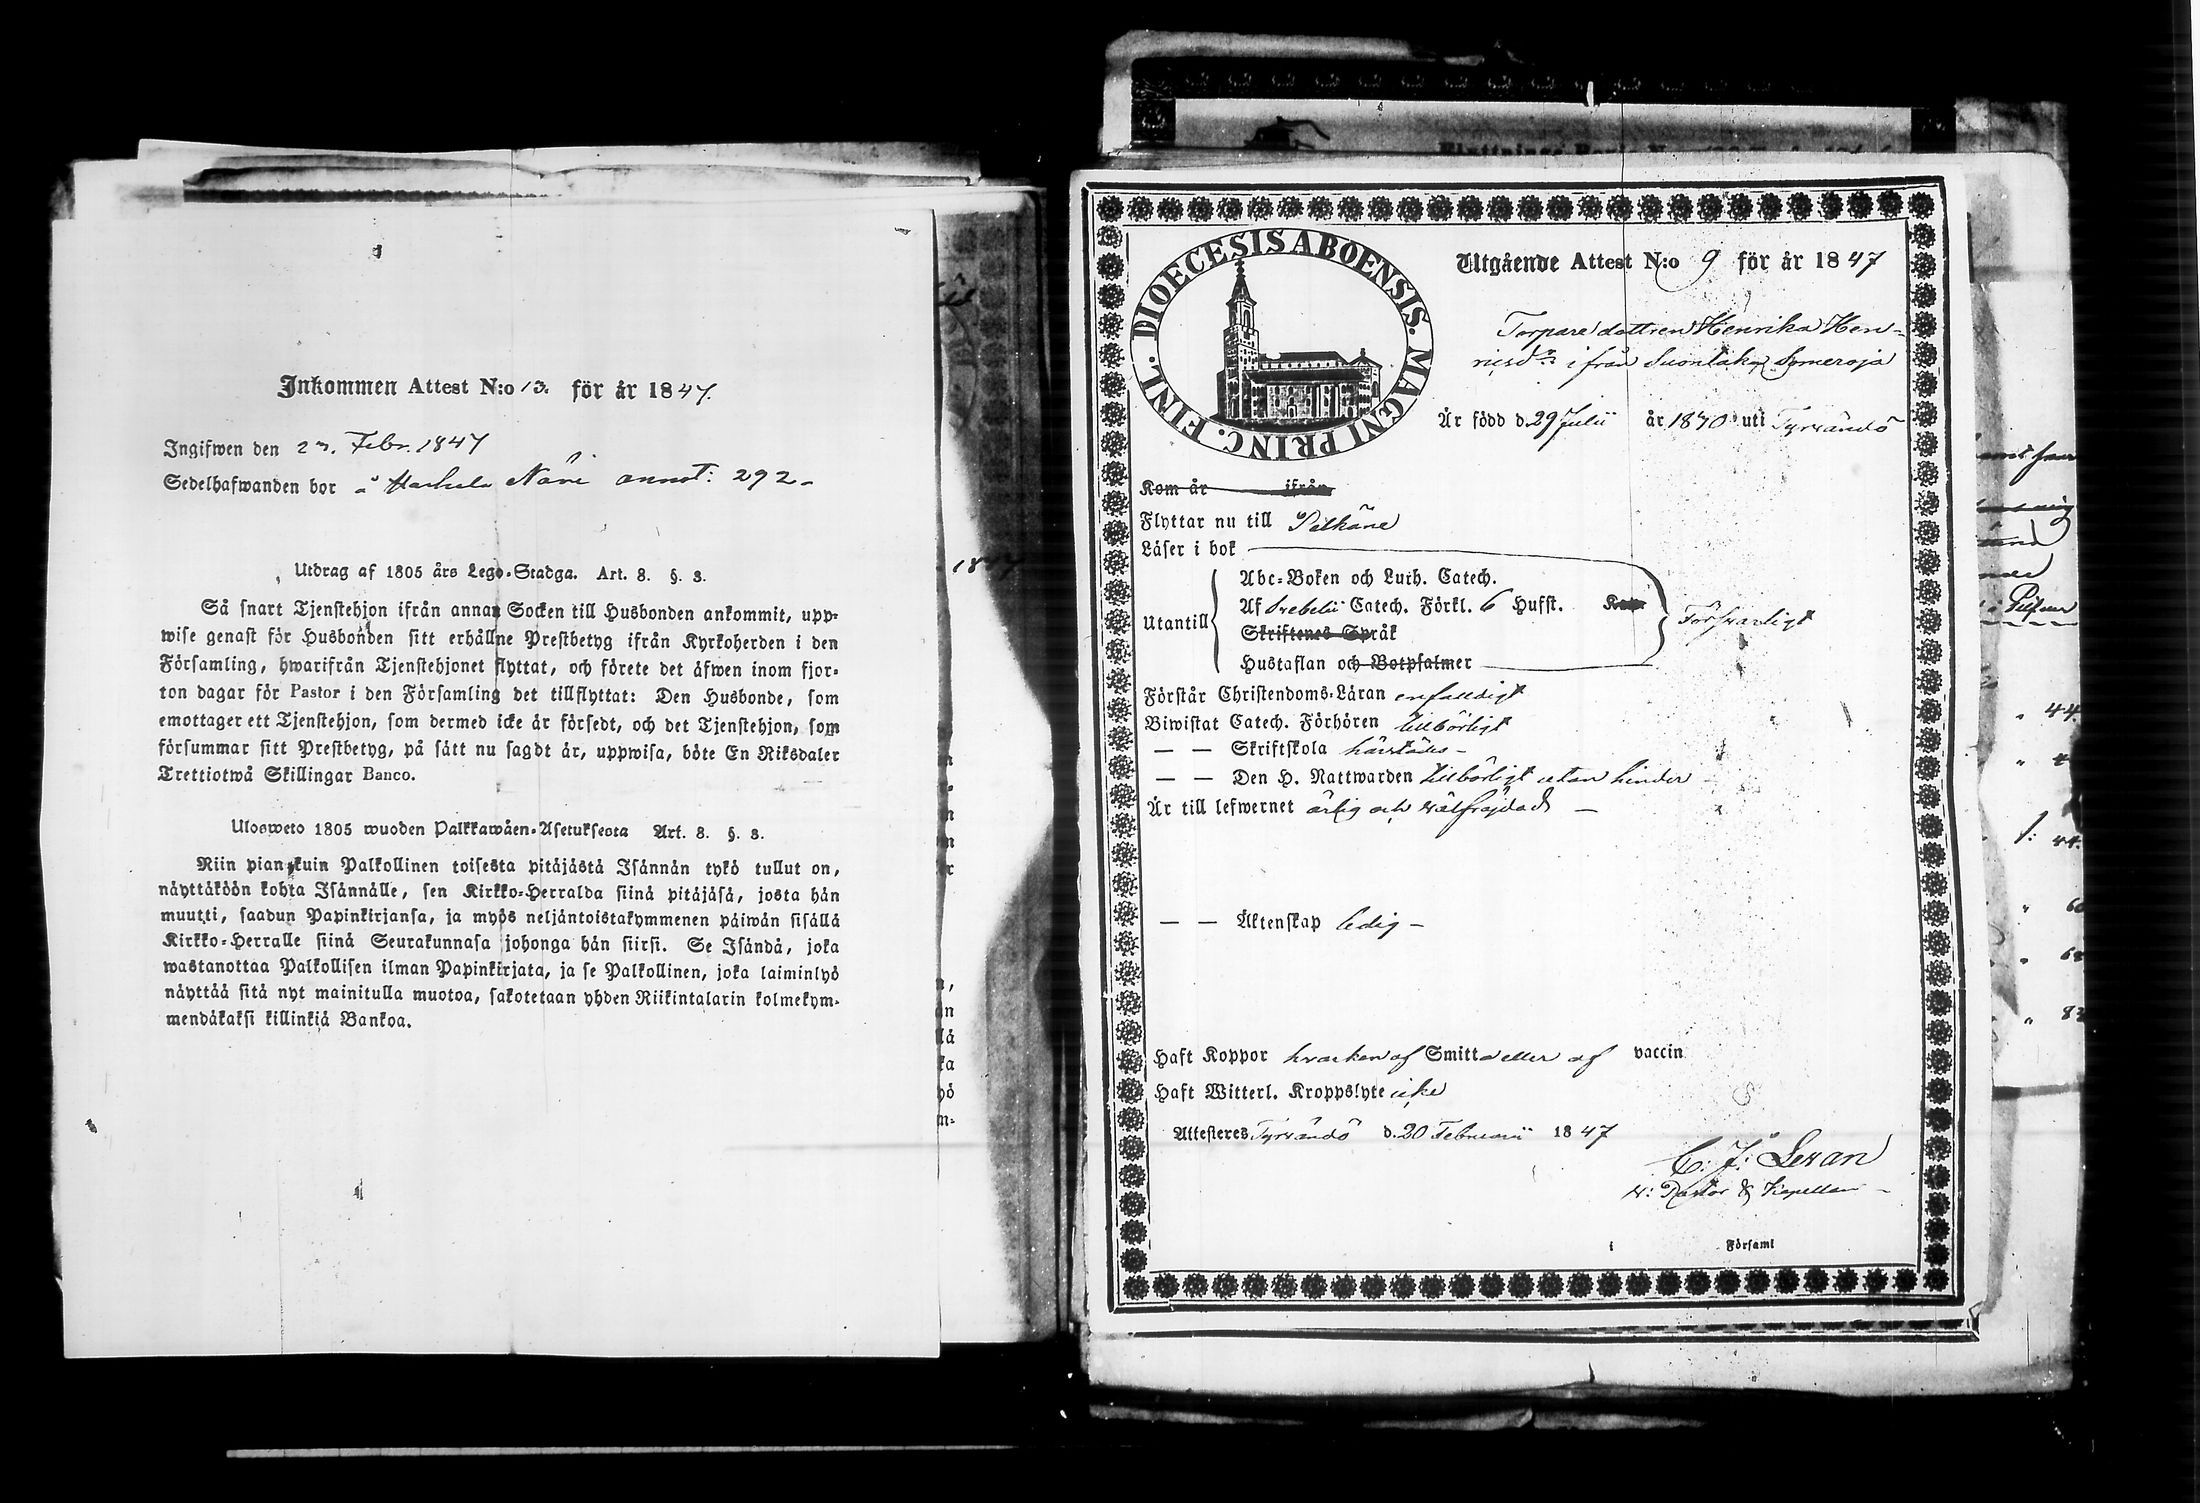 Inkommen Attest N:o 13. för år 1847.
Ingifwen den 27. Febr. 1847
Sedelhafwanden bor å Näri annot: 292
Utdrag af 1805 års Lego-Stadga. Art. 8. §. 3.
Så snart Tjenstehjon ifrån annan Socken till Husbonden ankommit, upp-
wise genast för Husbonden sitt erhållne Prestbetyg ifrån Kyrkoherden i den
Församling, hwarifrån Tjenstehjonet flyttat, och förete det äfwen inom fjor-
ton dagar för Pastor i den Församling det tillflyttat: Den Husbonde, som
emottager ett Tjenstehjon, som dermed icke är försedt, och det Tjenstehjon, som
försummar sitt Prestbetyg, på sätt nu sagdt är, uppwisa, böte En Riksdaler
Trettiotwå Skillingar Banco.
Ulosweto 1805 wuoden Palkkawäen-Asetuksesta Art. 8. §. 3.
Niin pian kuin Palkollinen toisesta pitäjästä Isännän tykö tullut on,
näyttäköön kohta Isännälle, sen Kirkko-Herralda siinä pitäjäsä, josta hän
muutti, saadun Papinkirjansa, ja myös neljäntoistakymmenen päiwän sisällä
Kirkko-Herralle siinä Seurakunnasa johonga hän siirsi. Se Isändä, joka
wastanottaa Palkollisen ilman Papinkirjata, ja se Palkollinen, joka laiminlyö
näyttää sitä nyt mainitulla muotoa, sakotetaan yhden Riikintalarin kolmekym-
mendäkaksi killinkiä Bankoa.
DIOECESIS ABOENSIS. MAGNI PRINC. FINL.
Utgående Attest N:o 9 för år 1847
Torpare dottren Henrika Hen-
ricsd:r ifrån Suontaka Someroja
Är född d. 29 Julii år 1820 uti Tyrvändö
Kom år ifrån
Flyttar nu till Pelkäne
Läser i bok
Utantill
Abc-Boken och Luth. Catech.
Af Svebelii Catech. Förkl. 6 Hufst.
Skriftenes Språk
Hustaflan och Botpsalmer
Försvarligt
Förstår Christendoms-Läran enfaldigt
Biwistat Catech. Förhören tillbörligt
— — Skriftskola härstädes
— — Den H. Nattwarden tillbörligt utan hinder
Är till lefwernet ärlig och välfrejdad
— — Äktenskap ledig
Haft Koppor hvarken af Smitta eller af vaccin
Haft Witterl. Kroppslyte icke
Attesteres Tyrvändö d. 20 Februarii 1847
C: J: Levan
v: Pastor & Kapellan
i Församl